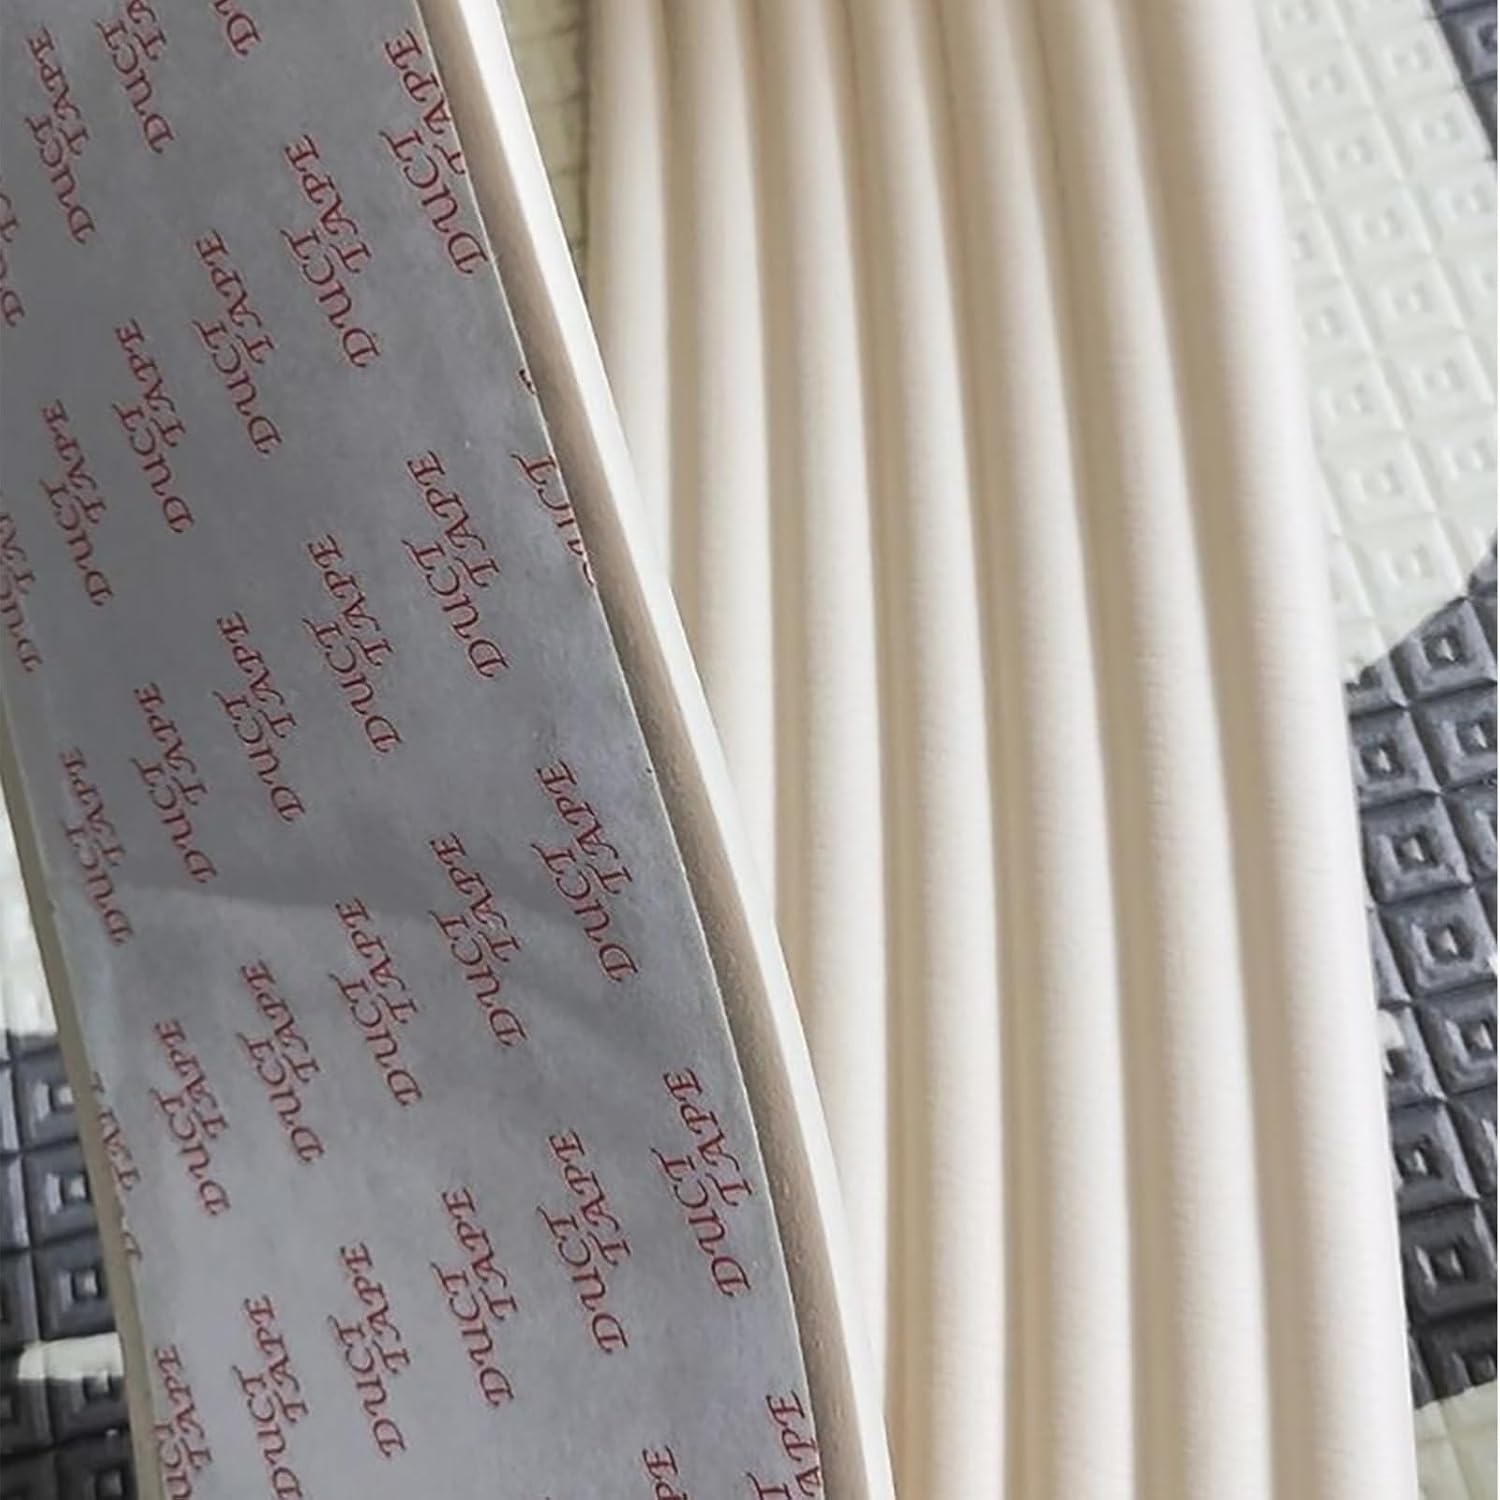 DUCT TAPE
DUCT TAPE
DUCT TAPE
DUCT TAPE
DUCT TAPE
DUCT TAPE
DUCT TAPE
DUCT TAPE
DUCT TAPE
DUCT TAPE
DUCT TAPE
DUCT TAPE
DUCT TAPE
DUCT TAPE
DUCT TAPE
DUCT TAPE
DUCT TAPE
DUCT TAPE
DUCT TAPE
DUCT TAPE
DUCT TAPE
DUCT TAPE
DUCT TAPE
DUCT TAPE